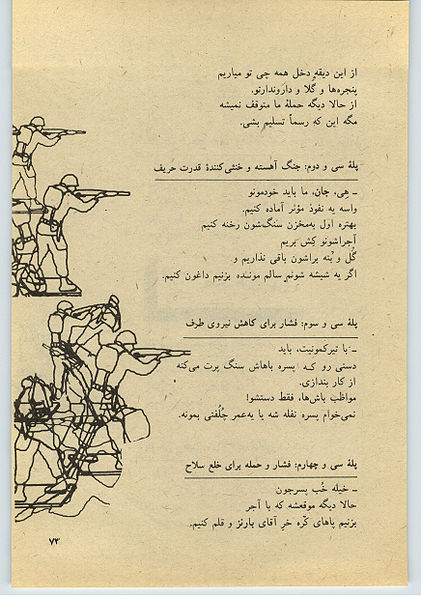 از این دیقه دخل همه چی تو میاریم
پنجره‌ها و گُلا و دارو‌ندارتو.
از حالا دیگه حملهٔ ما متوقف نمیشه
مگه این که رسماً تسلیم بشی.
پلهٔ سی و دوم: جنگ آهسته و خنثی‌کنندهٔ قدرت حریف
ـ هِی، جان، ما باید خودمونو
واسه یه نفوذ مؤثر آماده کنیم.
بهتره اول به‌مخزن سنگ‌شون رخنه کنیم
آجراشونو کِش بریم
گُل و بُته براشون باقی نذاریم و
اگر یه شیشه شونم سالم مونـده بزنیم داغون کنیم.
پلهٔ سی و سوم: فشار برای کاهش نیروی طرف
ـ با تیرکمونیت، باید
دستی رو کـه پسره باهاش سنگ پرت می‌کنه
از کار بندازی.
مواظب باش‌ها، فقط دستشو!
نمی‌خوام پسره نفله شه یا یه‌عمر چُلُفتی بمونه.
پلهٔ سی و چهارم: فشار و حمله برای خلع سلاح
ـ خیله خُب پسرجون
حالا دیگه موقعشه که با آجر
بزنیم پاهای کُره خرِ آقای بارنز و قلم کنیم.
۷۳